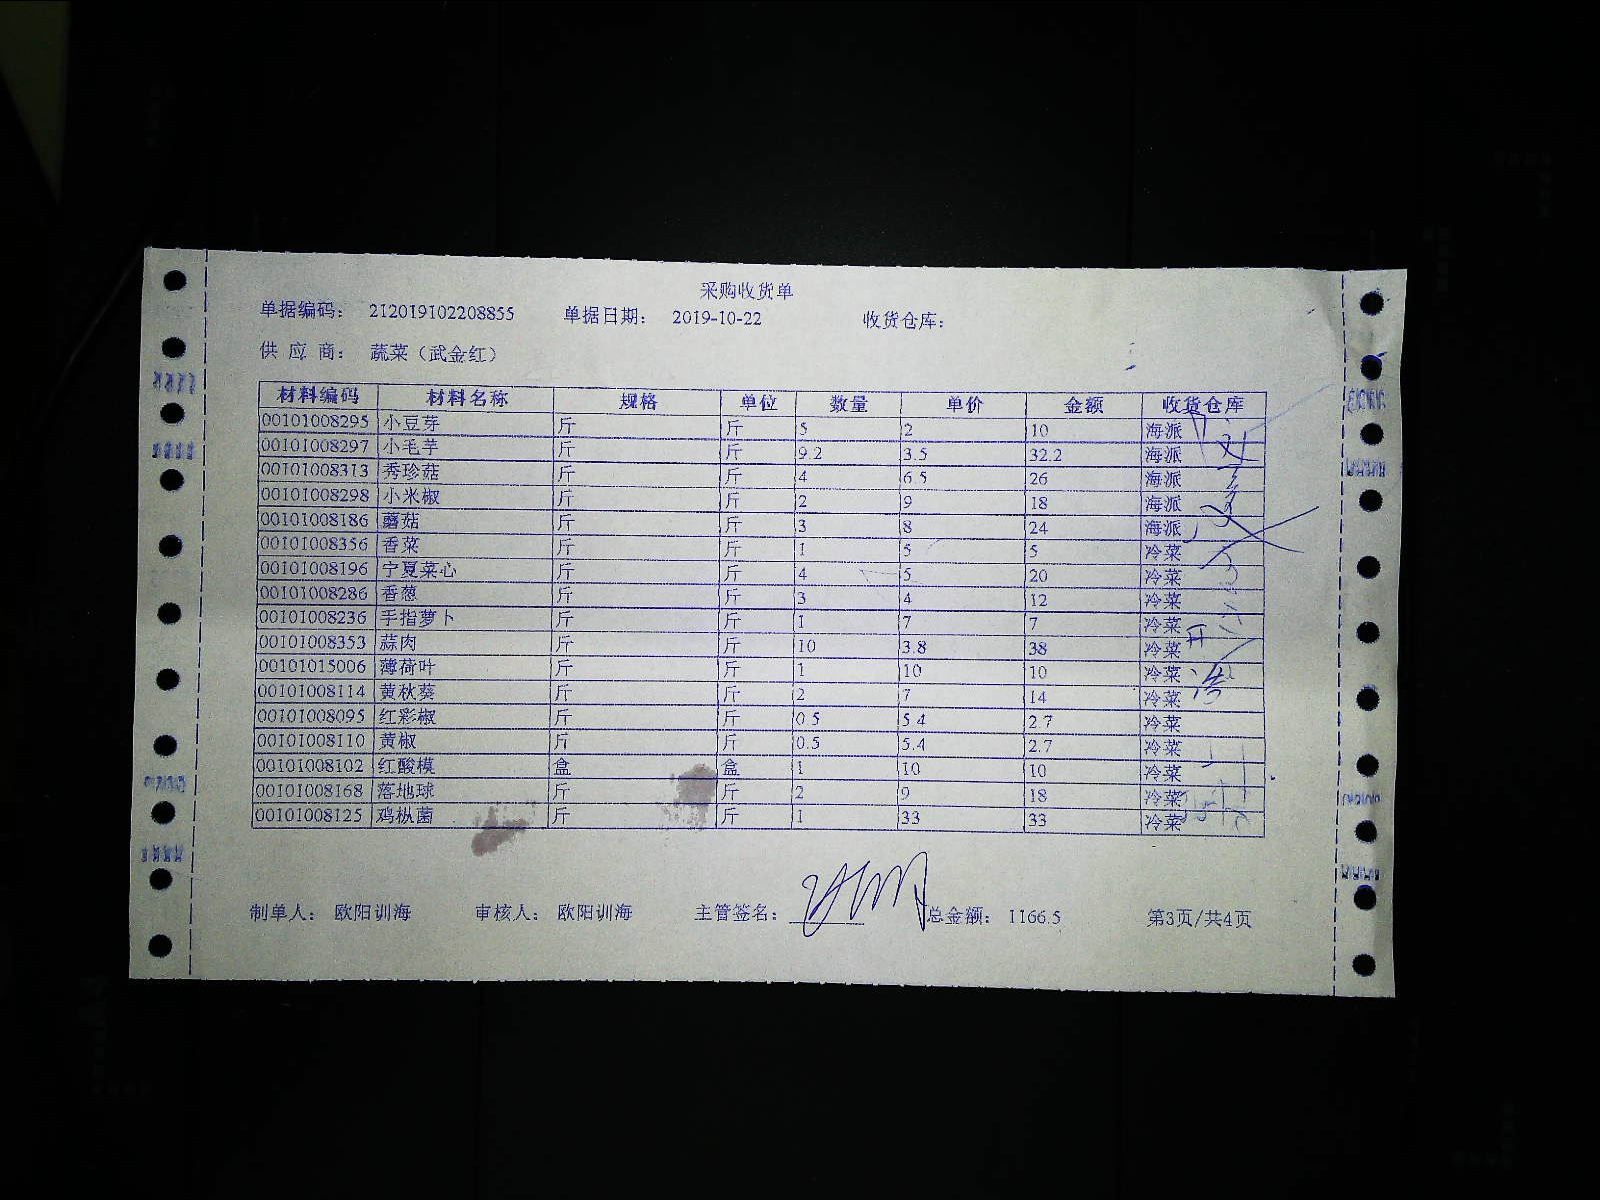 采购收货单
单据编码： 212019102208855 单据日期： 2019-10-22 收货仓库：
供 应 商： 蔬菜（武金红）
材料编码 材料名称 规格 单位 数量 单价 金额 收货仓库
00101008295 小豆芽 斤 斤 5 2 10 海派
00101008297 小毛芋 斤 斤 9.2 3.5 32.2 海派
00101008313 秀珍菇 斤 斤 4 6.5 26 海派
00101008298 小米椒 斤 斤 2 9 18 海派
00101008186 蘑菇 斤 斤 3 8 24 海派
00101008356 香菜 斤 斤 1 5 5 冷菜
00101008196 宁夏菜心 斤 斤 4 5 20 冷菜
00101008286 香葱 斤 斤 3 4 12 冷菜
00101008236 手指萝卜 斤 斤 1 7 7 冷菜
00101008353 蒜肉 斤 斤 10 3.8 38 冷菜
00101015006 薄荷叶 斤 斤 1 10 10 冷菜
00101008114 黄秋葵 斤 斤 2 7 14 冷菜
00101008095 红彩椒 斤 斤 0.5 5.4 2.7 冷菜
00101008110 黄椒 斤 斤 0.5 5.4 2.7 冷菜
00101008102 红酸模 盒 盒 1 10 10 冷菜
00101008168 落地球 斤 斤 2 9 18 冷菜
00101008125 鸡枞菌 斤 斤 1 33 33 冷菜
制单人： 欧阳训海 审核人： 欧阳训海 主管签名： 总金额： 1166.5 第3页/共4页